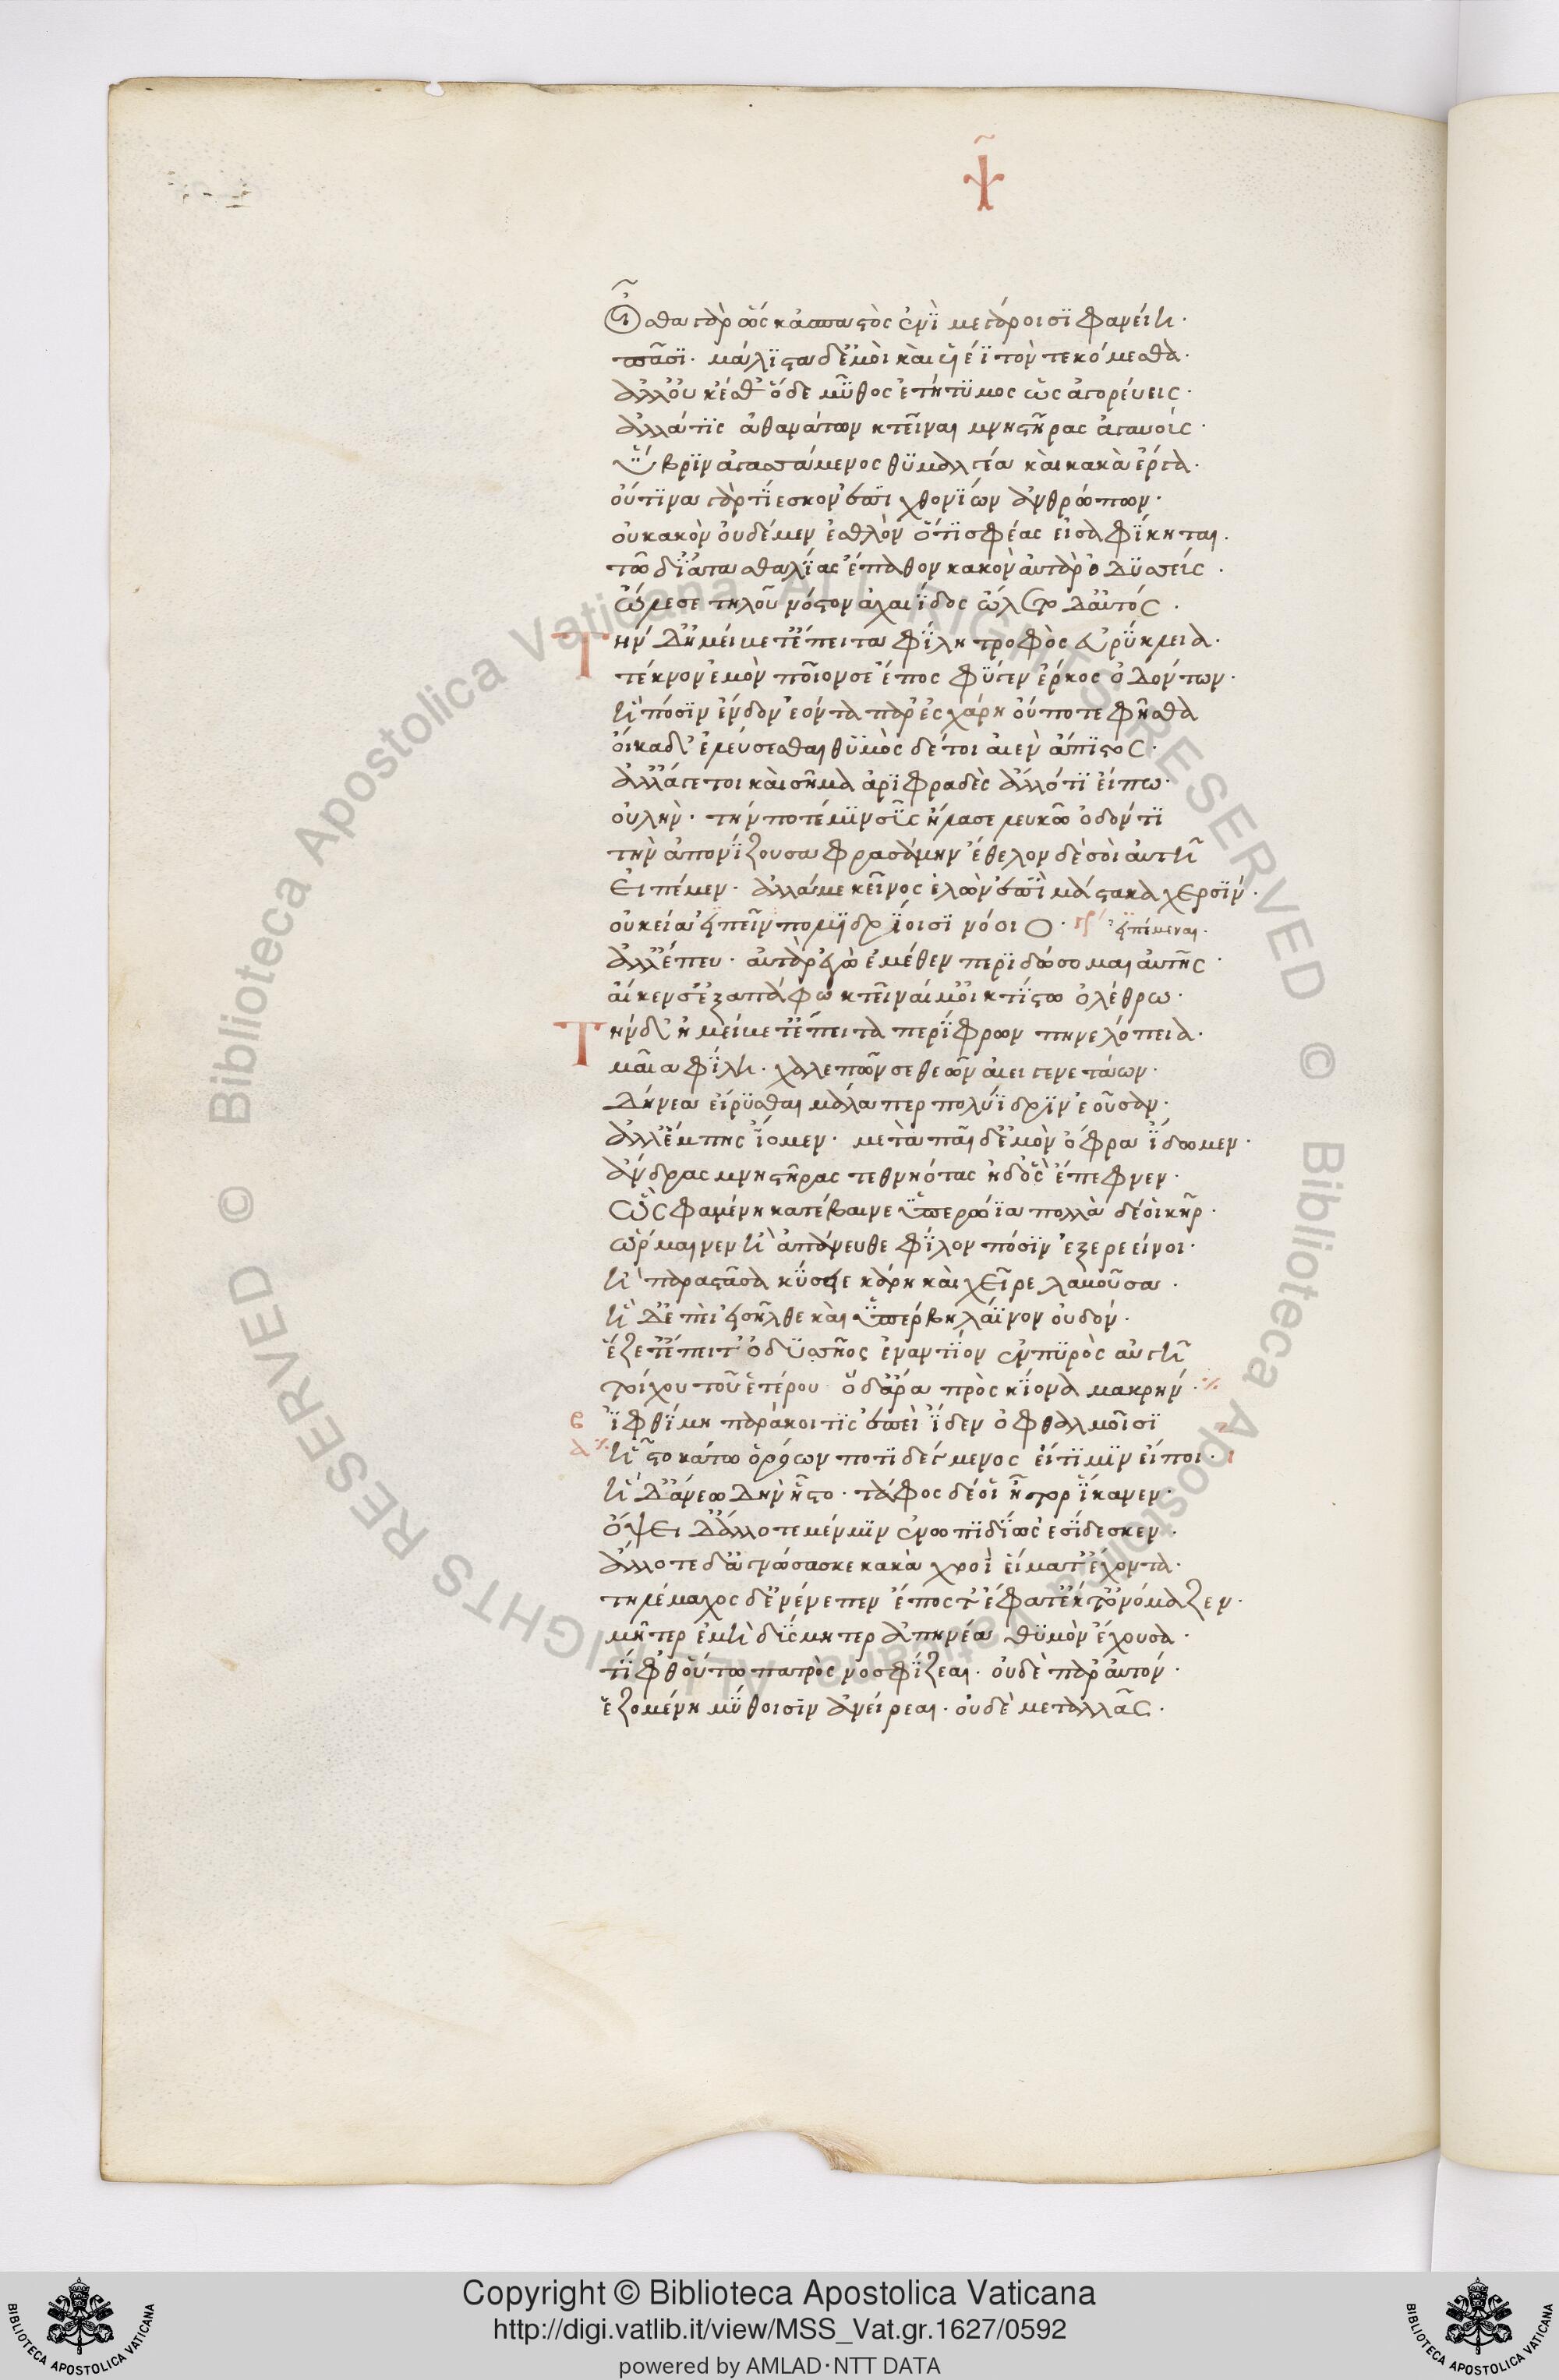 ψ
οἶσθα γὰρ ὡς κἀσπαστὸς ἐνὶ μεγάροισι φανείη·
πᾶσι· μάλιστα δ᾽ ἐμοὶ καὶ υἱέϊ τὸν τεκόμεσθα·
ἀλλ᾽ οὐκ ἔσθ᾽ ὅδε μῦθος ἐτήτυμος ὡς ἀγορεύεις·
ἀλλά τις ἀθανάτων κτεῖναι μνηστῆρας ἀγαυούς·
ὕβριν ἀγασσάμενος θυμαλγέα καὶ κακὰ ἔργα·
οὔτινα γὰρ τίεσκον ἐπιχθονίων ἀνθρώπων·
οὐ κακὸν οὐδὲ μὲν ἐσθλὸν ὅτι σφέας εἰσαφίκηται·
τῶ δι᾽ ἀτασθαλίας ἔπαθον κακὸν αὐτὰρ ὀδυσσεύς·
ὤλεσε τηλοῦ νόστον ἀχαιΐδος ὤλετο δ᾽ αὐτός·
Τὴν δ᾽ ἠμείβετ᾽ ἔπειτα φίλη τροφὸς εὐρύκλεια·
τέκνον ἐμὸν ποῖόν σε ἔπος φύγεν ἕρκος ὀδόντων·
ἣ πόσιν ἔνδον ἐόντα παρ᾽ ἐσχάρη οὔποτε φῆσθα
οἴκαδ᾽ ἐλεύσεσθαι θυμὸς δέ τοι αἰὲν ἄπιστος·
ἀλλ᾽ ἄγε τοι καὶ σῆμα ἀριφραδὲς ἄλλό τι εἴπω·
οὐλὴν· τήν ποτέ μιν σῦς ἤλασε λευκῶ ὀδόντι
τὴν ἀπονίζουσα φρασάμην ἔθελον δὲ σοὶ αὐτῆ
εἰπέμεν· ἀλλά με κεῖνος ἑλὼν ἐπὶ μάστακα χερσίν·
οὐκ εἴα εἰπεῖν πολυϊδρίοισι νόοιο· γρ εἰπέμεναι·
ἀλλ᾽ ἕπευ· αὐτὰρ ἐγὼ ἐμέθεν περιδώσομαι αὐτῆς·
αἴ κέν σ᾽ ἐξαπάφω κτεῖναί μ᾽ οἰκτίστω ὀλέθρω·
Τὴν δ᾽ ἠμείβετ᾽ ἔπειτα περίφρων πηνελόπεια·
μαῖα φίλη· χαλεπῶν σε θεῶν αἰειγενετάων·
δήνεα εἴρυσθαι μάλα περ πολύϊδριν ἐοῦσαν·
ἀλλ᾽ ἔμπης ἴομεν· μετὰ παῖδ᾽ ἐμὸν ὄφρα ἴδωμεν·
ἄνδρας μνηστῆρας τεθνηότας ἠδ᾽ ὃς ἔπεφνεν·
ὣς φαμένη κατέβαινε ὑπερώϊα πολλὰ δέ οἱ κῆρ·
ὥρμαινεν ἢ ἀπάνευθε φίλον πόσιν ἐξερεείνοι·
ἢ παραστᾶσα κύσειε κάρη καὶ χεῖρε λαβοῦσα·
ἡ δ᾽ ἐπεὶ εἰσῆλθε καὶ ὑπέρβη λάϊνον οὐδόν·
ἕζετ᾽ ἔπειτ᾽ ὀδυσσῆος ἐναντίον ἐν πυρὸς αὐγῆ
τοίχου τοῦ ἑτέρου ὃ δ᾽ ἄρα πρὸς κίονα μακρὴν·
β ἰφθίμη παράκοιτις ἐπεὶ ἴδεν ὀφθαλμοῖσι
α ἧστο κάτω ὁρόων ποτιδέγμενος εἴ τί μιν εἴποι·
ἡ δ᾽ ἄνεω δὴν ἧστο· τάφος δέ οἱ ἦτορ ἵκανεν·
ὄψει δ᾽ ἄλλοτε μέν μιν ἐνωπιδίως ἐσίδεσκεν·
ἄλλοτε δ᾽ ἀγνώσασκε κακὰ χροῒ εἵματ᾽ ἔχοντα·
τηλέμαχος δ᾽ ἐνένεπεν ἔπος τ᾽ ἔφατ᾽ ἔκ τ᾽ ὀνόμαζεν·
μῆτερ ἐμὴ δύσμητερ ἀπηνέα θυμὸν ἔχουσα·
τίφθ᾽ οὕτω πατρὸς νοσφίζεαι· οὐδὲ παρ᾽ αὐτόν·
ἑζομένη μύθοισιν ἀνείρεαι· οὐδὲ μεταλλᾶς·
Copyright © Biblioteca Apostolica Vaticana
http://digi.vatlib.it/view/MSS_Vat.gr.1627/0592
powered by AMLAD·NTT DATA